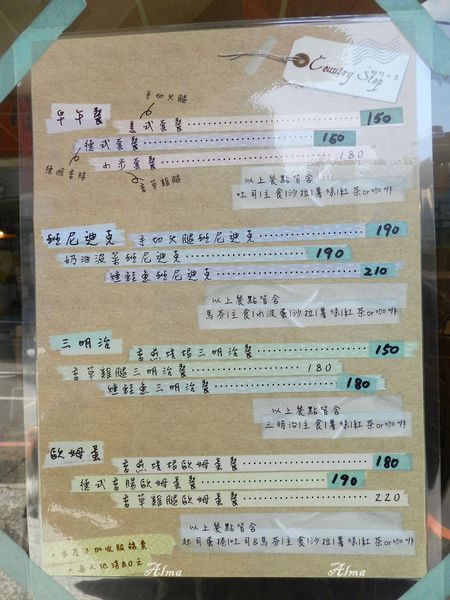 Country Stop
手切火腿
早午餐
美式套餐 150
德式套餐 160
小米套餐 180
德國香腸
香草雞腿
以上餐點皆含
吐司|主食|沙拉|薯條|紅茶or咖啡
班尼迪克
手切火腿班尼迪克 190
奶油波菜班尼迪克 190
燻鮭魚班尼迪克 210
以上餐點皆含
馬芬|主食|水波蛋|沙拉|薯條|紅茶or咖啡
三明治
香煎培根三明治餐 150
香草雞腿三明治餐 180
燻鮭魚三明治餐 180
以上餐點皆含
三明治|主食|薯條|紅茶or咖啡
歐姆蛋
香煎培根歐姆蛋餐 180
德式香腸歐姆蛋餐 190
香草雞腿歐姆蛋餐 220
以上餐點皆含
起司蛋捲|吐司&馬芬|主食|沙拉|薯條|紅茶or咖啡
加收服務費
每人低消80元
Alma
Alma